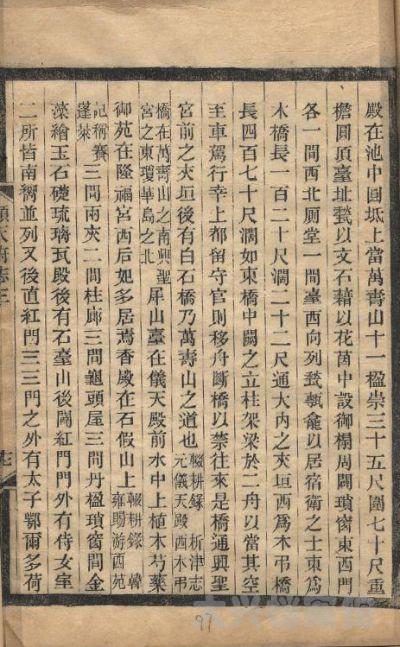 殿在池中圓坻上當萬壽山十一楹崇三十五尺圍七十尺重
檐圓頂臺址甃以文石藉以花茵中設御榻周闢瑣窗東西門
各一間西北廁堂一間臺西向列甃甎龕以居宿衛之士東爲
木橋長一百二十尺濶二十二尺通大內之夾垣西爲木弔橋
長四百七十尺濶如東橋中闕之立柱架梁於二舟以當其空
至車駕行幸上都留守官則移舟斷橋以禁往來是橋通興聖
宮前之夾垣後有白石橋乃萬壽山之道也輟耕錄 析津志元儀天殿西木弔
橋在萬壽山之南興聖宮之東瓊華島之北犀山臺在儀天殿前水中上植木芍藥
御苑在隆福宮西后妃多居焉香殿在石假山上輟耕錄 韓雍賜游西苑
記稱賽蓬萊三間兩夾二間柱廊三間龜頭屋三間丹楹瑣窗間金
藻繪玉石礎琉璃瓦殿後有石臺山後闢紅門門外有侍女室
二所皆南嚮並列又後直紅門三三門之外有太子鄂爾多荷
順天府志三
97